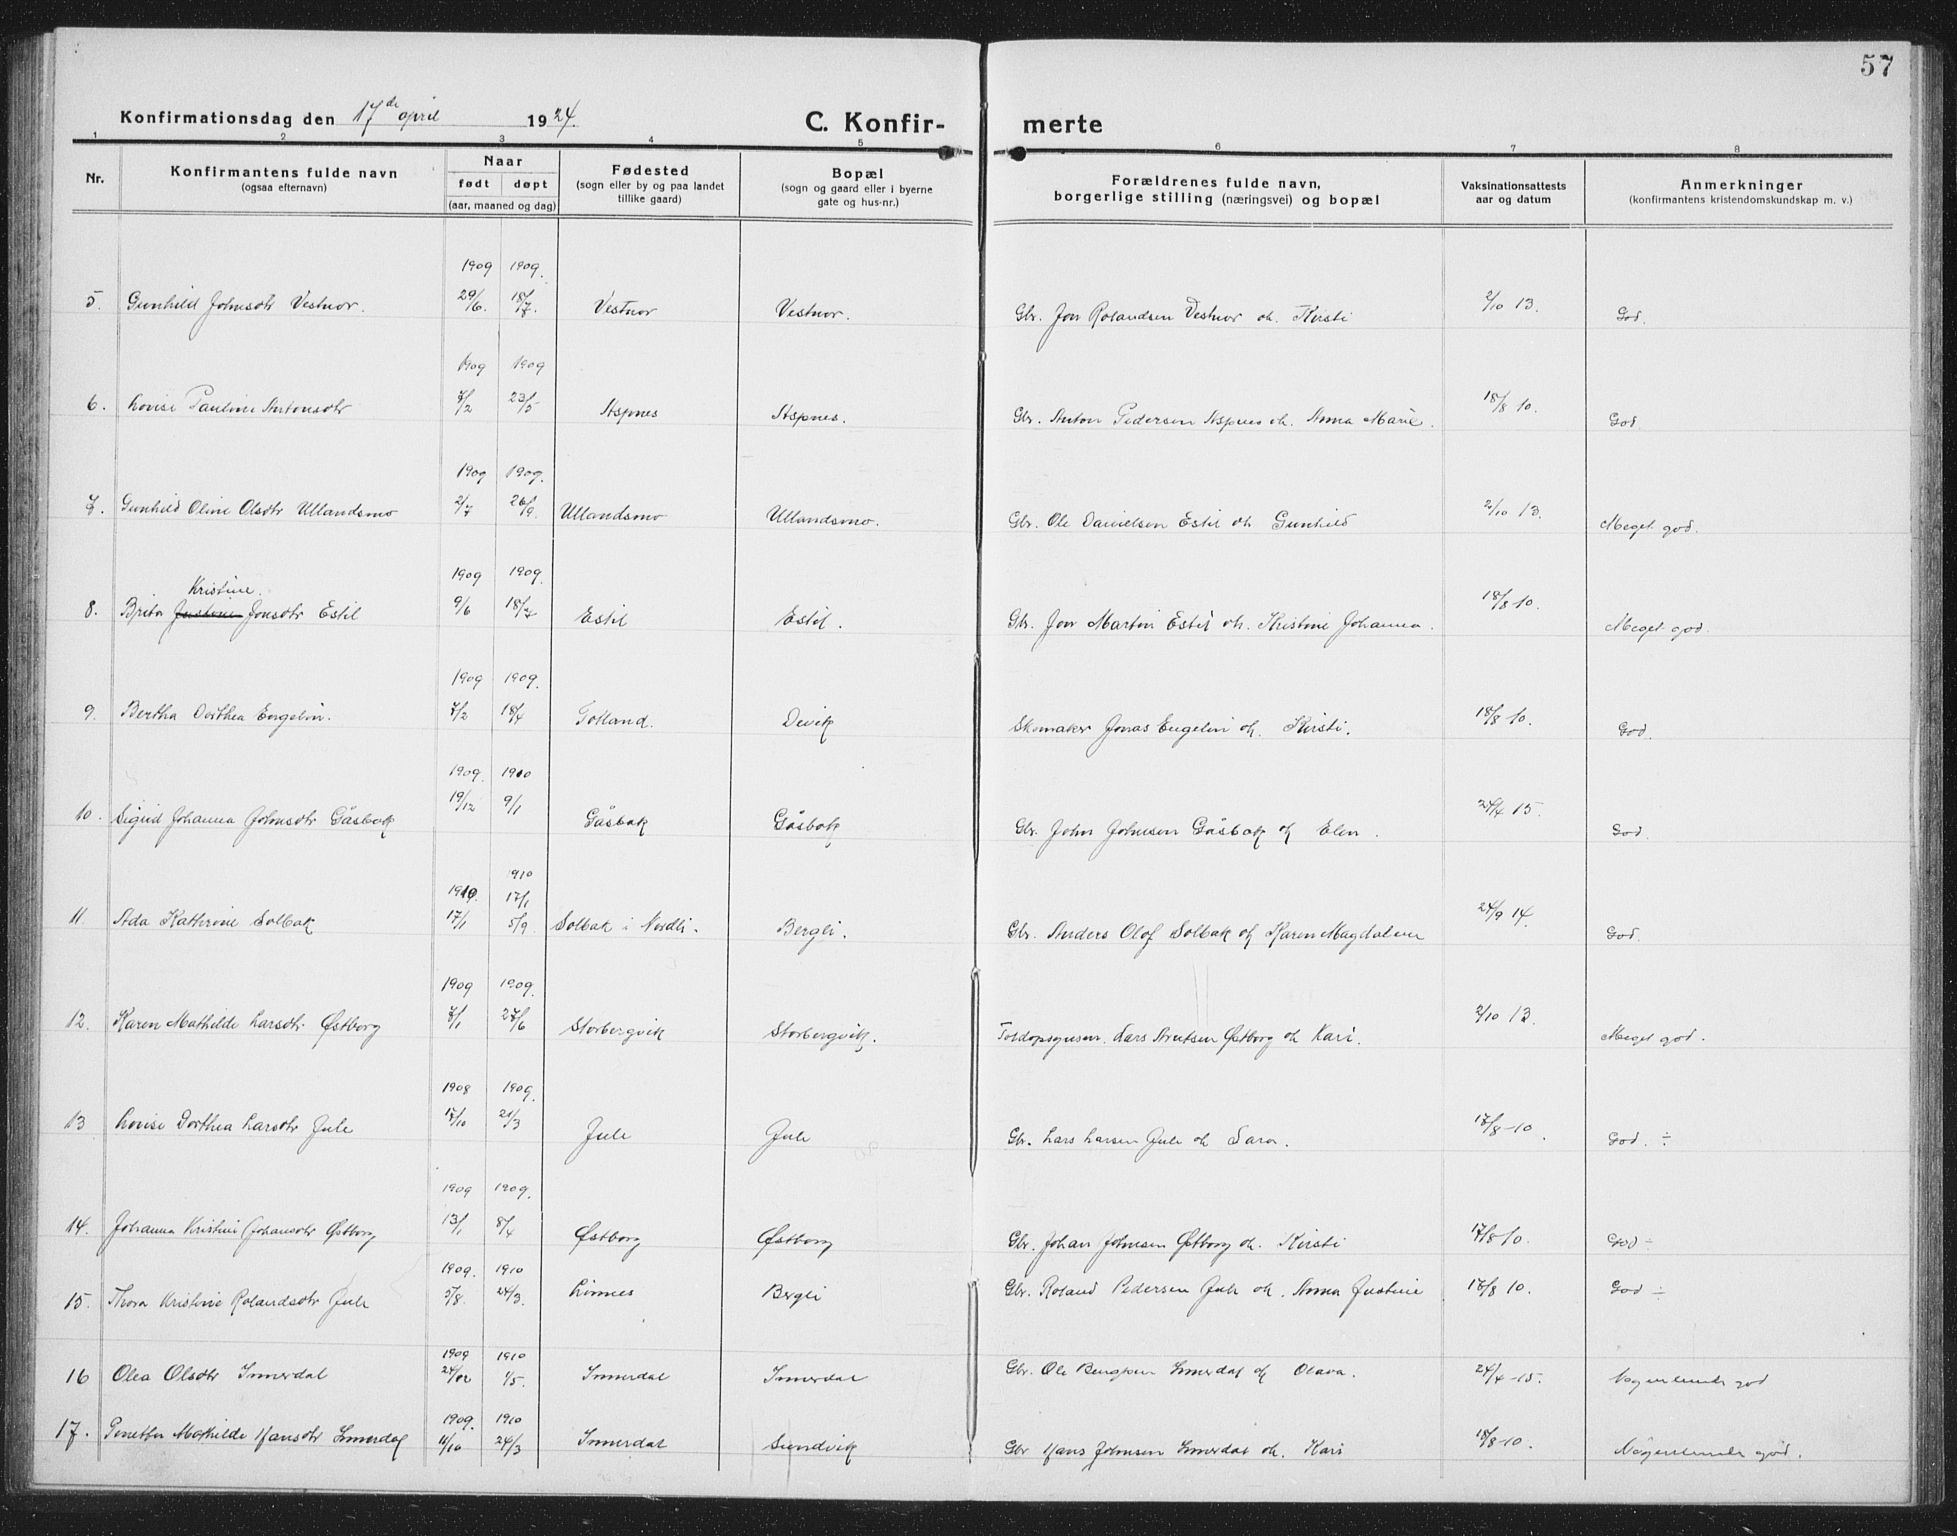 57
Konfirmationsdag den 17de april 1924. C. Konfir- merte
1 2 3 4 5 6 7 8
Nr. Konfirmantens fulde navn (ogsaa efternavn) Naar født døpt (aar, maaned og dag) Fødested (sogn eller by og paa landet tillike gaard) Bopæl (sogn og gaard eller i byerne gate og hus-nr.) Forældrenes fulde navn, borgerlige stilling (næringsvei) og bopæl Vaksinationsattests aar og datum Anmerkninger (konfirmantens kristendomskundskap m. v.)
1909 1909.
5. Gunhild Johnsdtr Vestnor. 29/6. 18/7. Vestnor Vestnor. Gbr. Jon Rolandsen Vestnor oh. Kirsti 2/10 13. God.
1909 1909
6. Lovise Pauline Antonsdtr 7/2 23/5 Aspnes Aspnes. Gbr. Anton Pedersen Aspnes oh. Anna Marie. 18/8 10. God
1909 1909.
7. Gunhild Oline Olsdtr Ullandsmo 2/7 26/9. Ullandsmo Ullandsmo. Gbr. Ole Danielsen Estil oh Gunhild 2/10 13. Meget god.
Kristine. 1909 1909.
8. Brita Justine Jonsdtr Estil 9/6 18/7 Estil Estil. Gbr. Jon Martin Estil oh. Kristine Johanna. 18/8 10. Meget god.
1909 1909.
9. Bertha Dorthea Engelin. 7/2 18/4 Totland. Devik Skomaker Jonas Engelin oh. Kirsti. 18/8 10. God.
1909. 1910
10. Sigrid Johanna Johnsdtr Gåsbak 19/12 9/1 Gåsbak Gåsbak Gbr. John Johnsen Gåsbak oh Elen. 24/4 15. God.
1910. 1910 17/1
11 Ada Kathrine Solbak 17/1 5/9 Solbak i Nordli. Bergli. Gbr. Anders Olof Solbak oh Karen Magdalena 24/9 14. God.
1909 1909.
12. Karen Mathilde Larsdtr Østborg 7/1 27/6 Storbergvik Storbergvik. Toldopsynsm. Lars Arntsen Østborg oh Kari. 2/10 13. Meget god.
1908 1909.
13 Lovise Dorthea Larsdtr Jule 17/10 21/3 Jule Jule Gbr. Lars Larsen Jule oh Sara. 17/8-10. God. ÷
1909 1909.
14. Johanna Kristine Johansdtr Østborg 13/1 8/4 Østborg Østborg Gbr. Johan Johnsen Østborg oh. Kirsti 17/8 10. God ÷
1909. 1910
15. Thora Kristine Rolandsdtr Jule 5/8. 24/3. Linnes Bergli Gbr. Roland Pedersen Jule oh. Anna Justine 18/8 10. God ÷
1909 1910
16 Olea Olsdtr Innerdal 24/12 1/5. Innerdal Innerdal Gbr. Ole Bengtsen Innerdal oh Olava. 24/4-15. Nogenlunde god
1909. 1910
17. Mathilde Hansdtr Innerdal 11/10 24/3 Innerdal Sundvik Gbr Hans Johnsen Innerdal oh. Kari 18/8-10. Nogenlunde god.